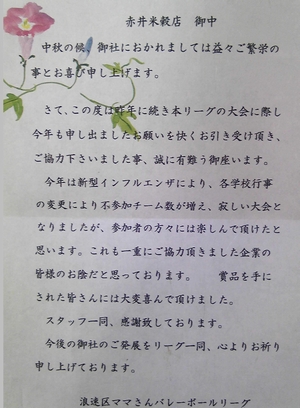 赤井米穀店 御中
中秋の候、御社におかれましては益々ご繁栄の
事とお喜び申し上げます。
さて、この度は昨年に続き本リーグの大会に際し
今年も申し出ましたお願いを快くお引き受け頂き、
ご協力下さいました事、誠に有難う御座います。
今年は新型インフルエンザにより、各学校行事
の変更により不参加チーム数が増え、寂しい大会と
なりましたが、参加者の方々には楽しんで頂けたと
思います。これも一重にご協力頂きました企業の
皆様のお陰だと思っております。 賞品を手に
された皆さんには大変喜んで頂けました。
スタッフ一同、感謝致しております。
今後の御社のご発展をリーグ一同、心よりお祈り
申し上げております。
浪速区ママさんバレーボールリーグ